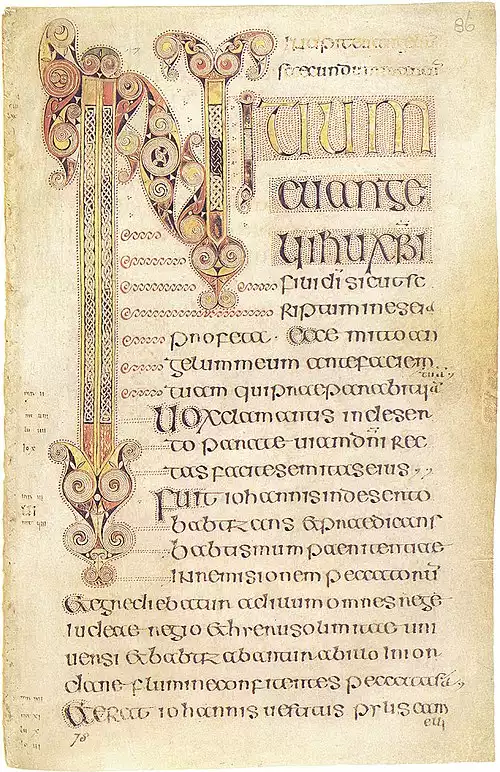 86
secundum marcum
INITIUM
euange
lii ihu xpi
filii di sicut sc
riptum in eseia
profeta · ecce mitto an
gelum meum ante faciem
tuam qui praeparabit uiā
tuā
uox clamantis in deser
to parate uiam dn̄i rec
tas facite semitas eius
fuit iohannis in deserto
babtizans & praedicans
babtismum paenitentiae
in remisionem peccatorū
& egrediebatur ad illum omnes rege
iudeae regio & hierusolimitae uni
uersi & babtizabantur ab illo in ior
dane flumine confitentes peccata sā
& erat iohannis uestitus pylis cam
elli
78